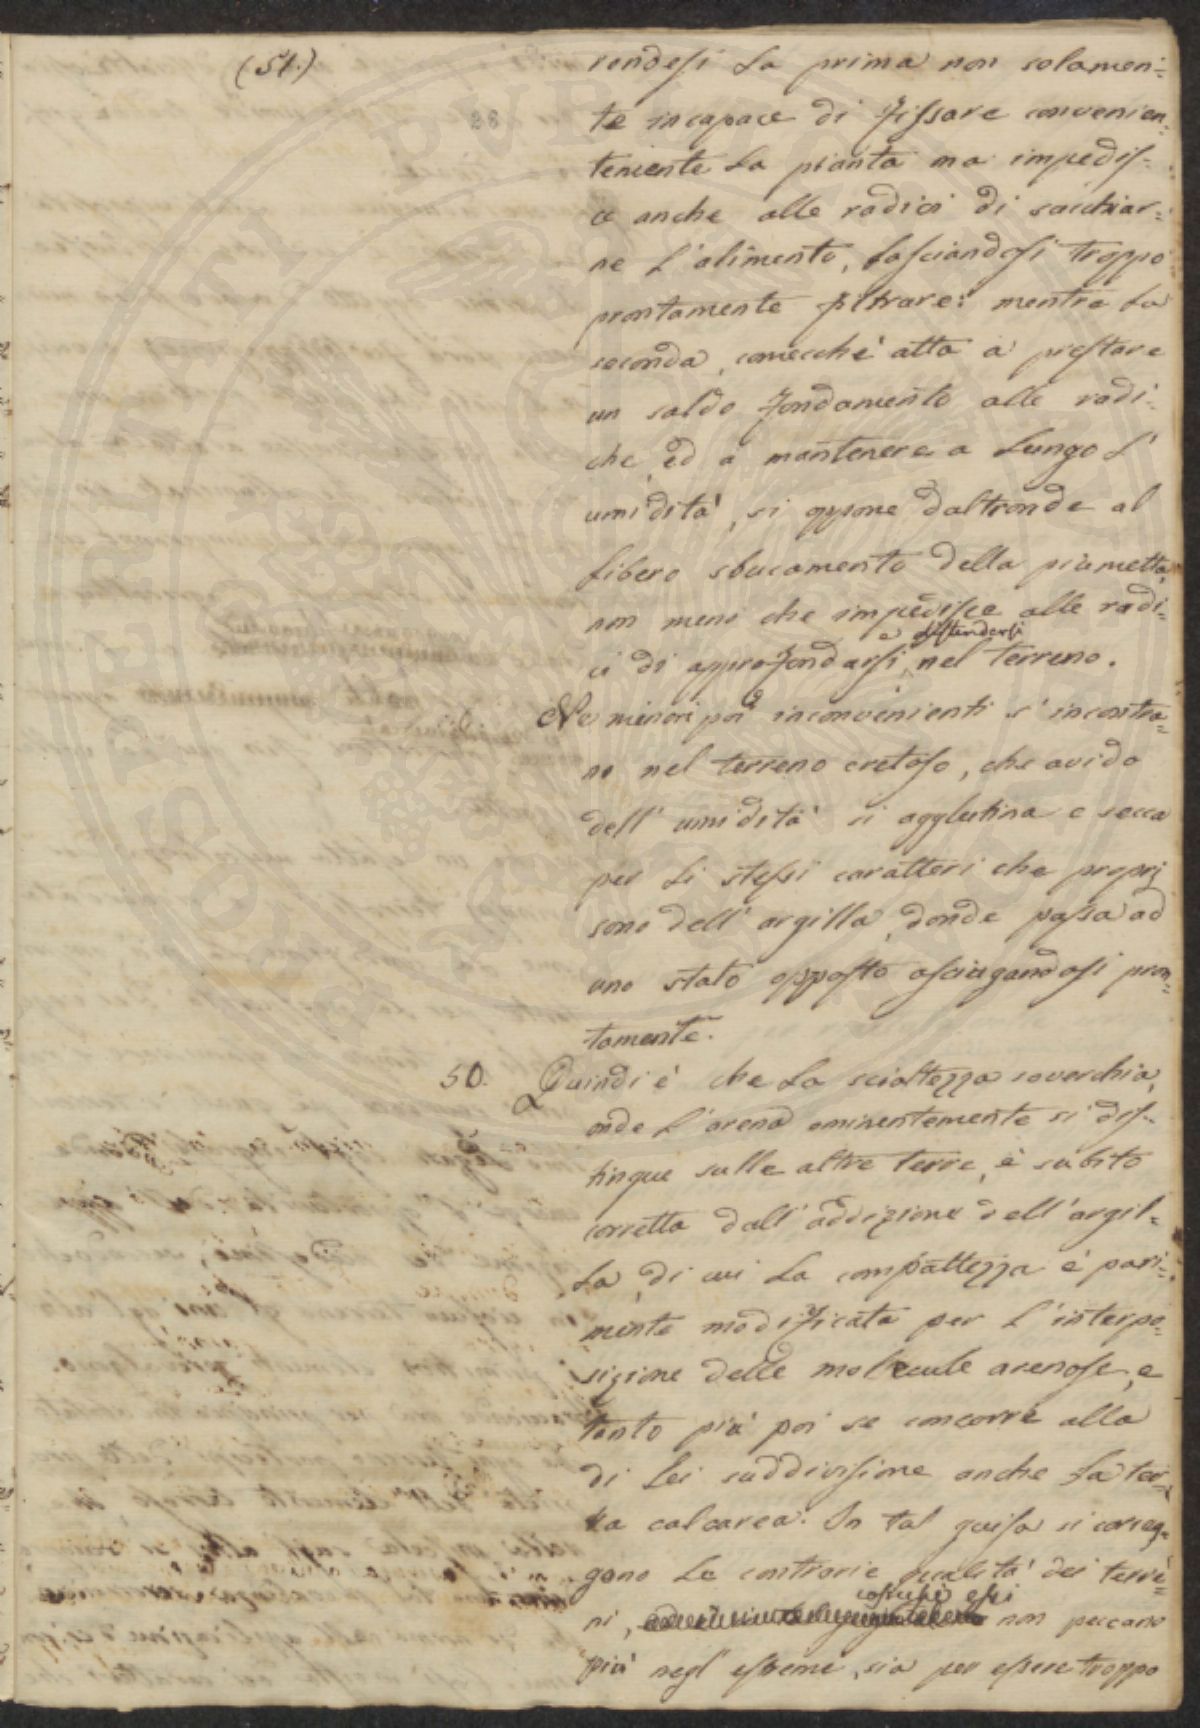 (51.)
rendesi la prima non solamen=
te incapace di fissare convenien=
temente la pianta ma impedis=
ce anche alle radici di succhiar=
ne l'alimento, lasciandosi troppo
prontamente filtrare: mentre la
seconda, comecchè atta a prestare
un saldo fondamento alle radi=
che, ed a mantenere a lungo l'
umidità, si oppone daltronde al
libero sbucamento della piumetta,
non meno che impedisce alle radi=
ci di approfondarsi e distendersi nel terreno.
Ne minori poi inconvenienti s'incontra=
no nel terreno cretoso, che avido
dell'umidità si agglutina e secca
per li stessi caratteri che proprj
sono dell'argilla, donde passa ad
uno stato opposto asciugandosi pron=
tamente.
50. Quindi è che la scioltezza soverchia,
onde l'arena eminentemente si dis=
tingue sulle altre terre, è subito
corretta dall'addizione dell'argil=
la, di cui la compattezza è pari=
mente modificata per l'interpo=
sizione delle molecule arenose, e
tanto più poi se concorre alla
di lei suddivisione anche la ter=
ra calcarea. In tal guisa si correg=
gono le contrarie qualità dei terre=
ni, cosicchè essi non peccano
più negl'estremi, sia per essere troppo